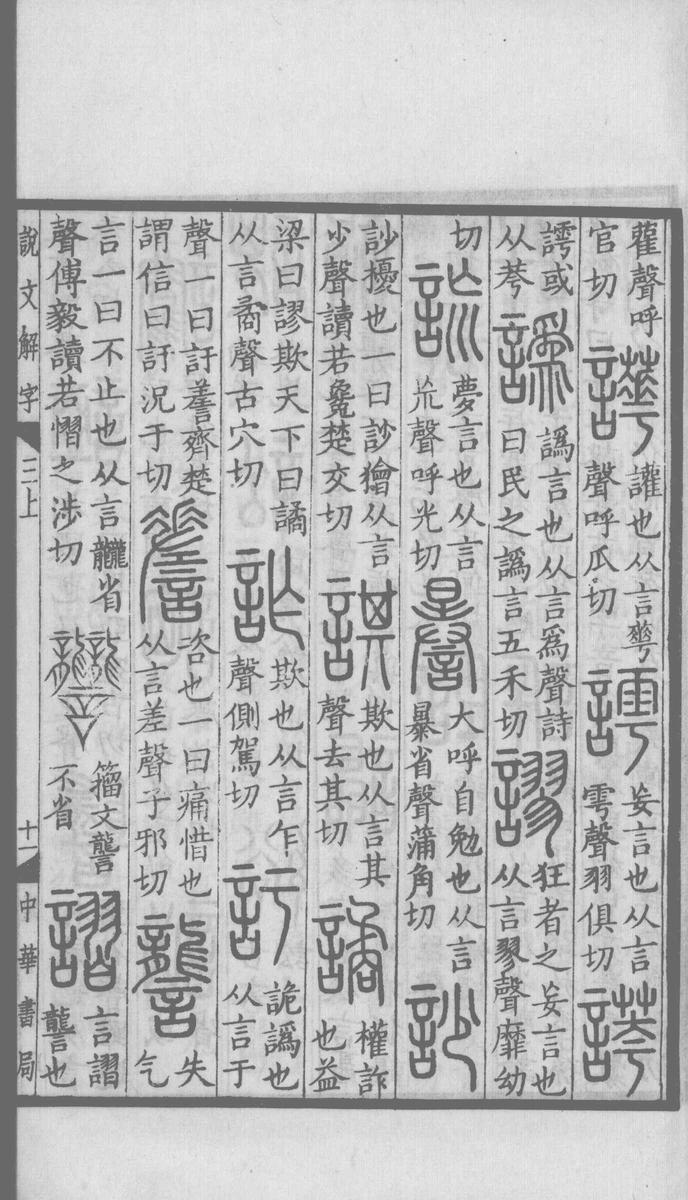 雚聲呼
官切
譁
讙也从言華
聲呼瓜切
謣
妄言也从言
雩聲羽俱切
謣或
从荂
譌
譌言也从言爲聲詩
曰民之譌言五禾切
謬
狂者之妄言也
从言翏聲靡幼
切
詤
夢言也从言
巟聲呼光切
謈
大呼自勉也从言
暴省聲蒲角切
訬
訬擾也一曰訬獪从言
少聲讀若毚楚交切
諆
欺也从言其
聲去其切
譎
權詐
也益
梁曰謬欺天下曰譎
从言矞聲古穴切
詐
欺也从言乍
聲側駕切
訏
詭譌也
从言于
聲一曰訏齊楚
謂信曰訏況于切
咨也一曰痛惜也
从言差聲子邪切
讋
失
气
言一曰不止也从言龖省
聲傅毅讀若慴之涉切
籒文讋
不省
謵
言謵
讋也
說文解字 三上
十一
中華書局